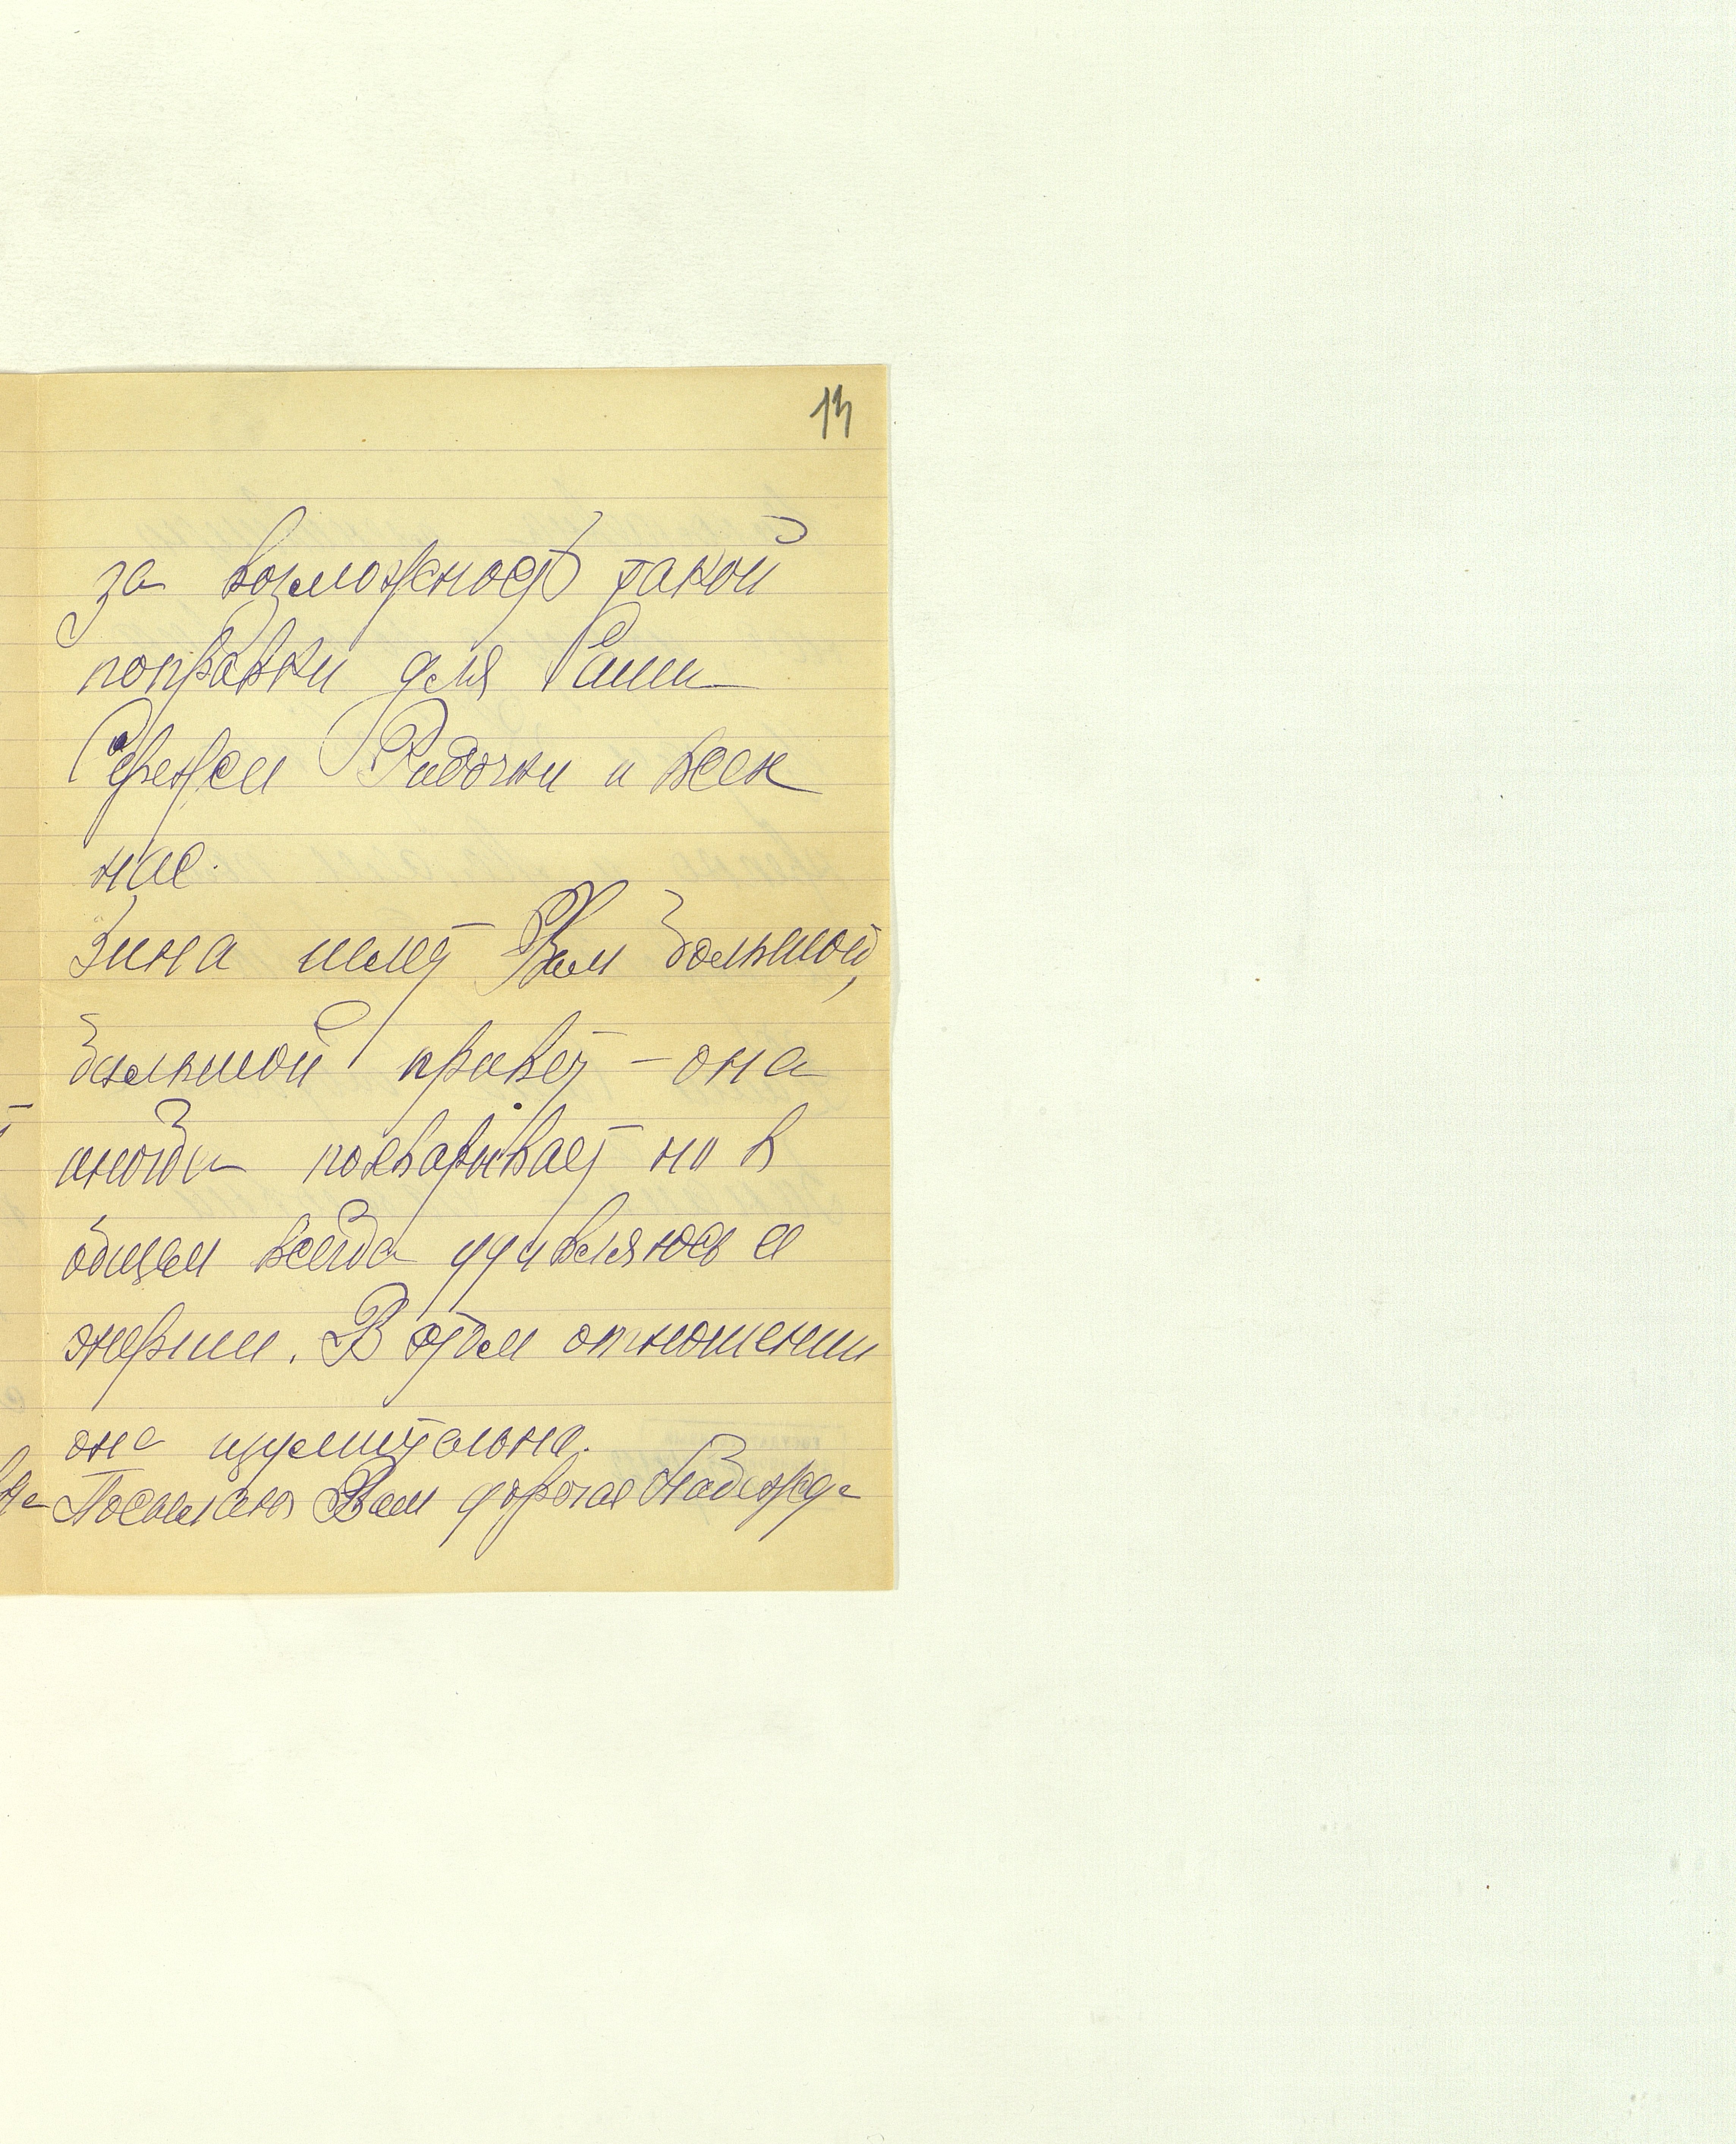 13
за возможность такой
поправки для Саши
Сережи Радочки и всех
нас.
Зина шлет Вам большой,
большой привет – она
иногда похварывает но в
общем всегда удивляюсь ее
энергии. В этом отношении
она изумительна.
Посылаю Вам дорогая Надежда